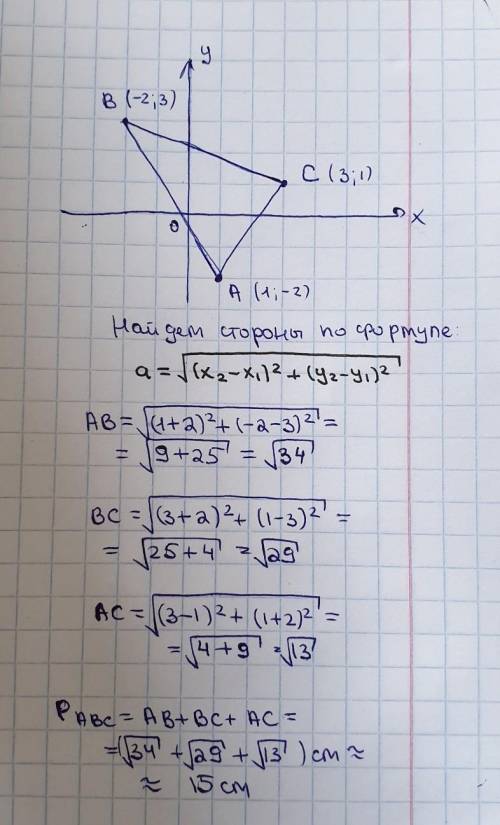 y
B (-2;3)
C (3;1)
0
x
A (1;-2)
Найдем стороны по формуле:
a = √((x₂-x₁)² + (y₂-y₁)²)
AB = √((1+2)² + (-2-3)²) =
= √(9+25) = √34
BC = √((3+2)² + (1-3)²) =
= √(25+4) = √29
AC = √((3-1)² + (1+2)²) =
= √(4+9) = √13
P_ABC = AB + BC + AC =
= (√34 + √29 + √13) см ≈
≈ 15 см